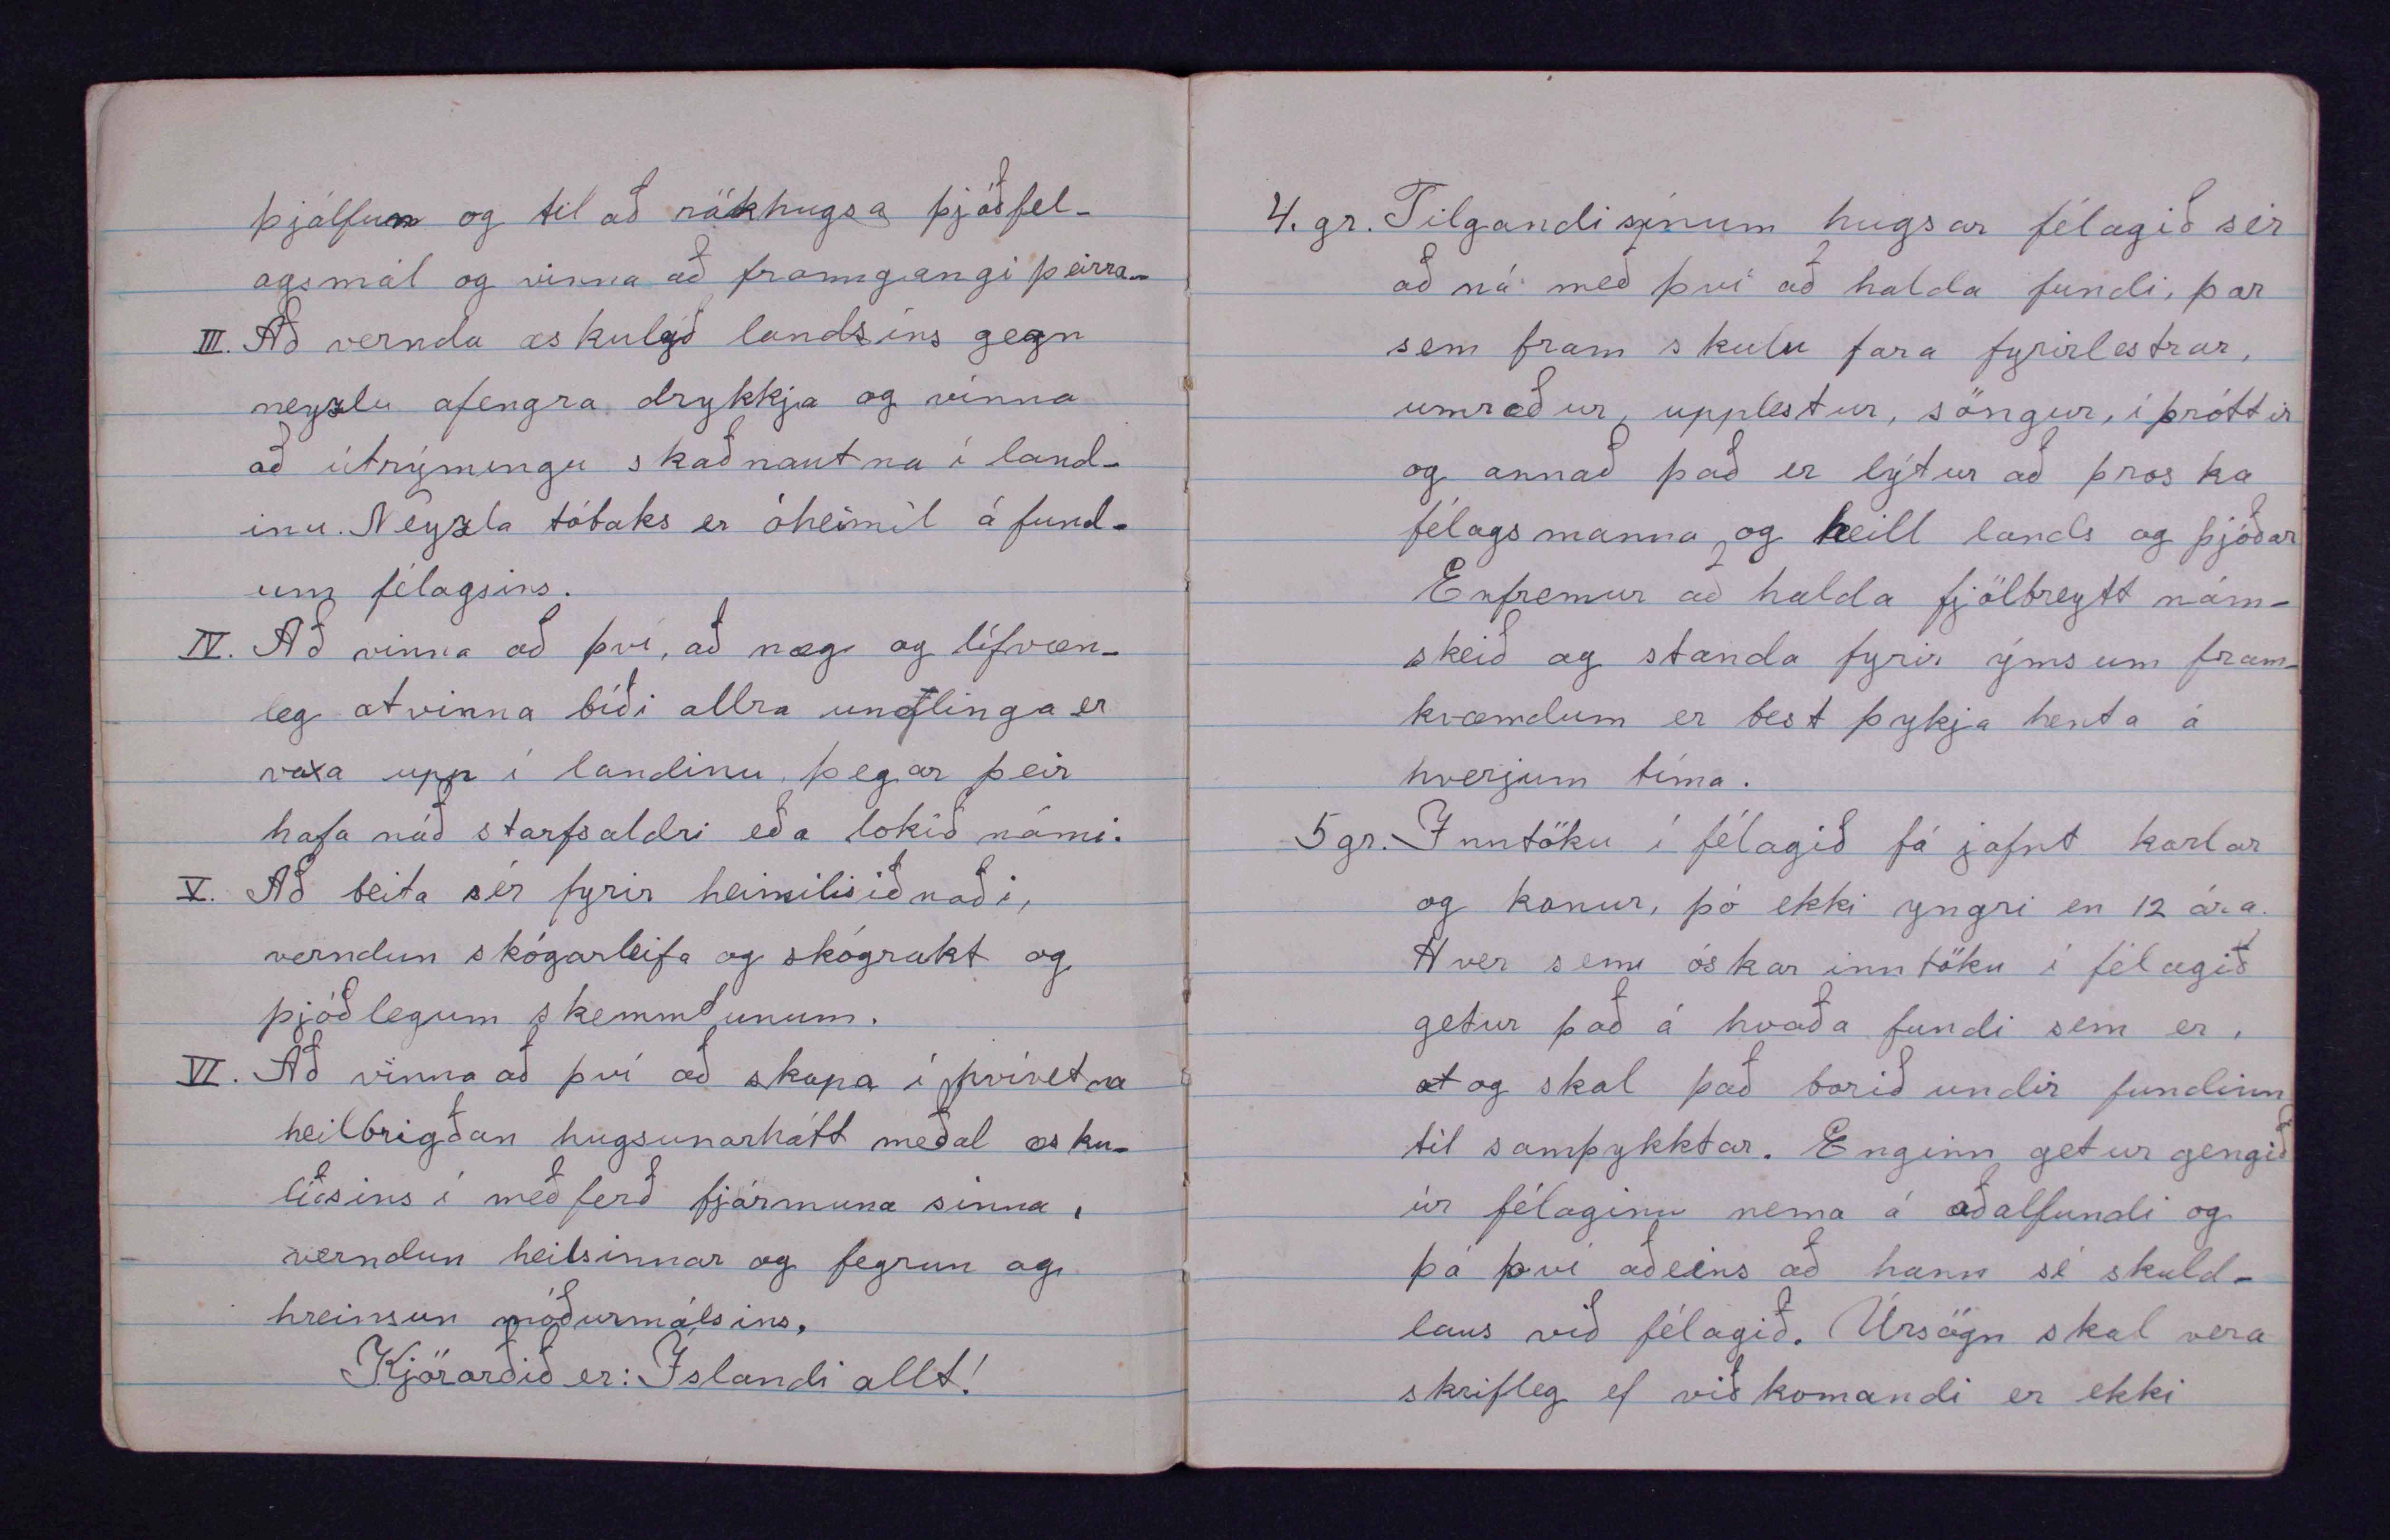 þjálfun og til að rökhugsa þjóðfel-
agsmál og vinna að framgangi þeirra.
III. Að vernda æskulýð landsins gegn
neyzlu afengra drykkja og vinna
að útrýmingu skaðnautna í land-
inu. Neyzla tóbaks er óheimil á fund-
um félagsins.
IV. Að vinna að því, að næg og lífvæn-
leg atvinna bíði allra unglinga er
vaxa upp í landinu þegar þeir
hafa náð starfsaldri eða lokið námi.
V. Að beita sér fyrir heimilisiðnaði,
verndun skógarleifa og skógrækt og
þjóðlegum skemmtunum.
VI. Að vinna að því að skapa í hvívetna
heilbrigðan hugsunarhátt meðal æsku-
líðsins í meðferð fjármuna sinna,
verndun heilsinnar og fegrun og
hreinsun móðurmálsins.
Kjörorðið er: Íslandi allt!
4. gr. Tilgangi sínum hugsar félagið sér
að ná með því að halda fundi, þar
sem fram skulu fara fyrirlestrar,
umræður, upplestur, söngur, íþróttir
og annað það er lýtur að þroska
félagsmanna og heill lands og þjóðar
Enfremur að halda fjölbreytt nám-
skeið og standa fyrir ýmsum fram-
kvæmdum er best þykja henta á
hverjum tíma.
5 gr. Inntöku í félagið fá jafnt karlar
og konur, þó ekki yngri en 12 ára.
Hver sem óskar inntöku í félagið
getur það á hvaða fundi sem er,
at og skal það borið undir fundinn
til samþykktar. Enginn getur gengið
úr félaginu nema á aðalfundi og
þá því aðeins að hann sé skuld-
laus við félagið. Úrsögn skal vera
skrifleg ef viðkomandi er ekki